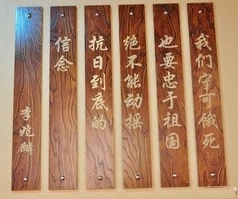 我们宁可饿死
也要忠于祖国
绝不能动摇
抗日到底的
信念
李兆麟